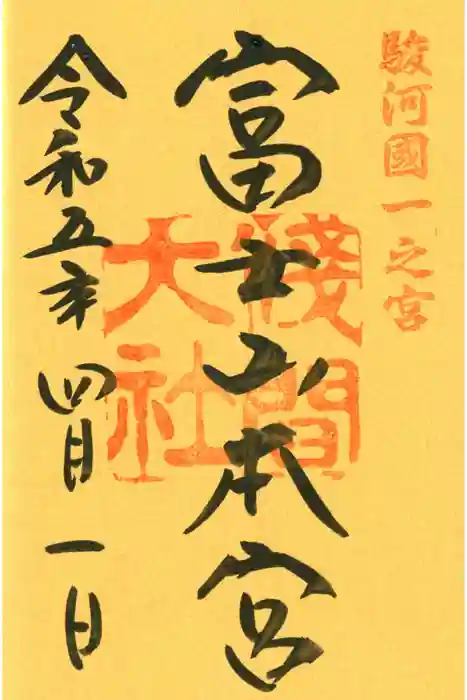 駿河國一之宮
富士山本宮
淺間
大社
令和五年四月一日